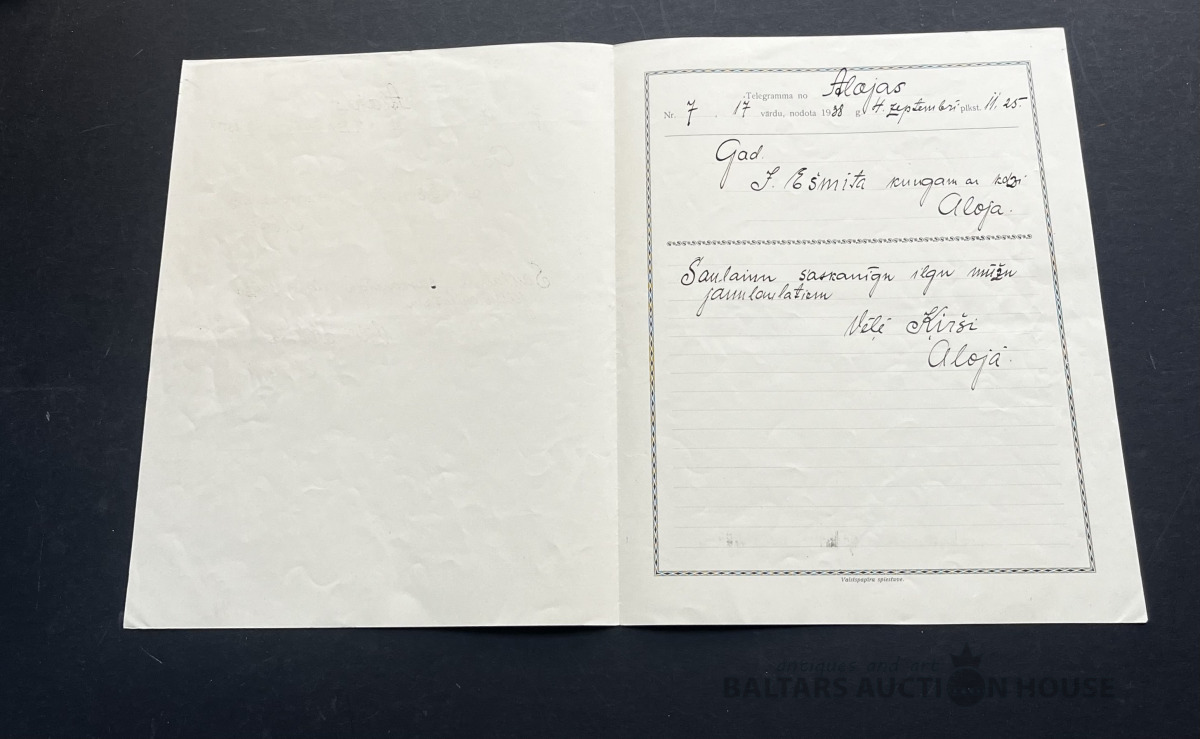 Telegramma no Alojas
Nr. 7. 17 vārdu, nodota 1938 g. 4. septembrī plkst. 11.25
Gad.
J. Ešmita kungam ar kdzi
Aloja.
Saulainu saskanīgu ilgu mūžu
jaunlaulātiem
Vēlē Ķirši
Alojā.
Valstspapīru spiestuve.
antiques and art
BALTARS AUCTION HOUSE